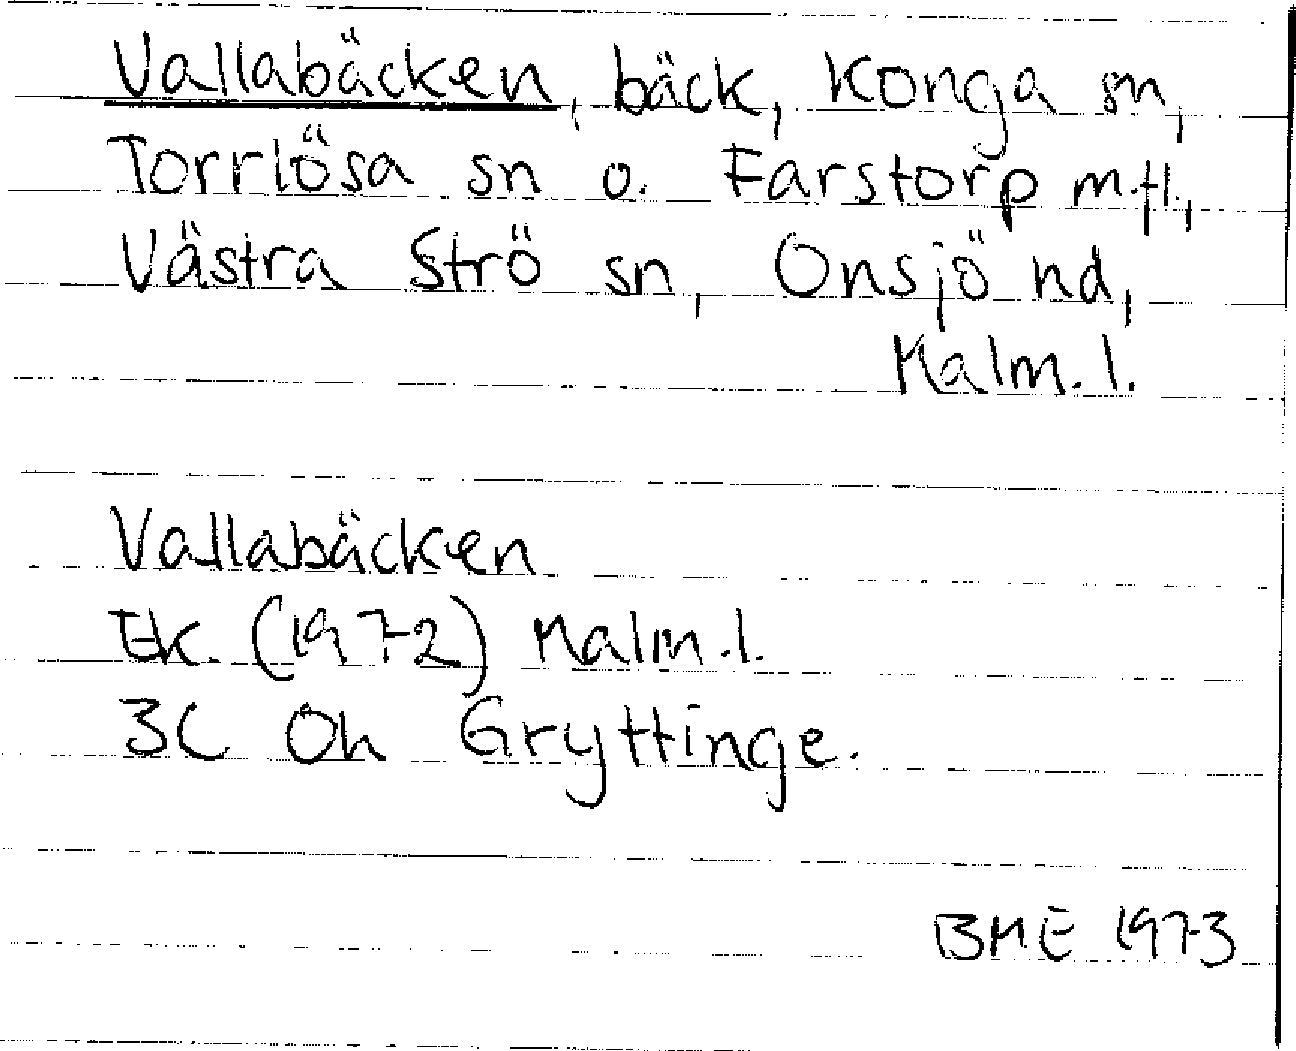 Vallabäcken, bäck, Konga sn,
Torrlösa sn o. Farstorp m.fl.,
Västra Strö sn, Onsjö hd,
Malm. l.
Vallabäcken
Ek. (1972) Malm. l.
3C Oh Gryttinge.
BME 1973